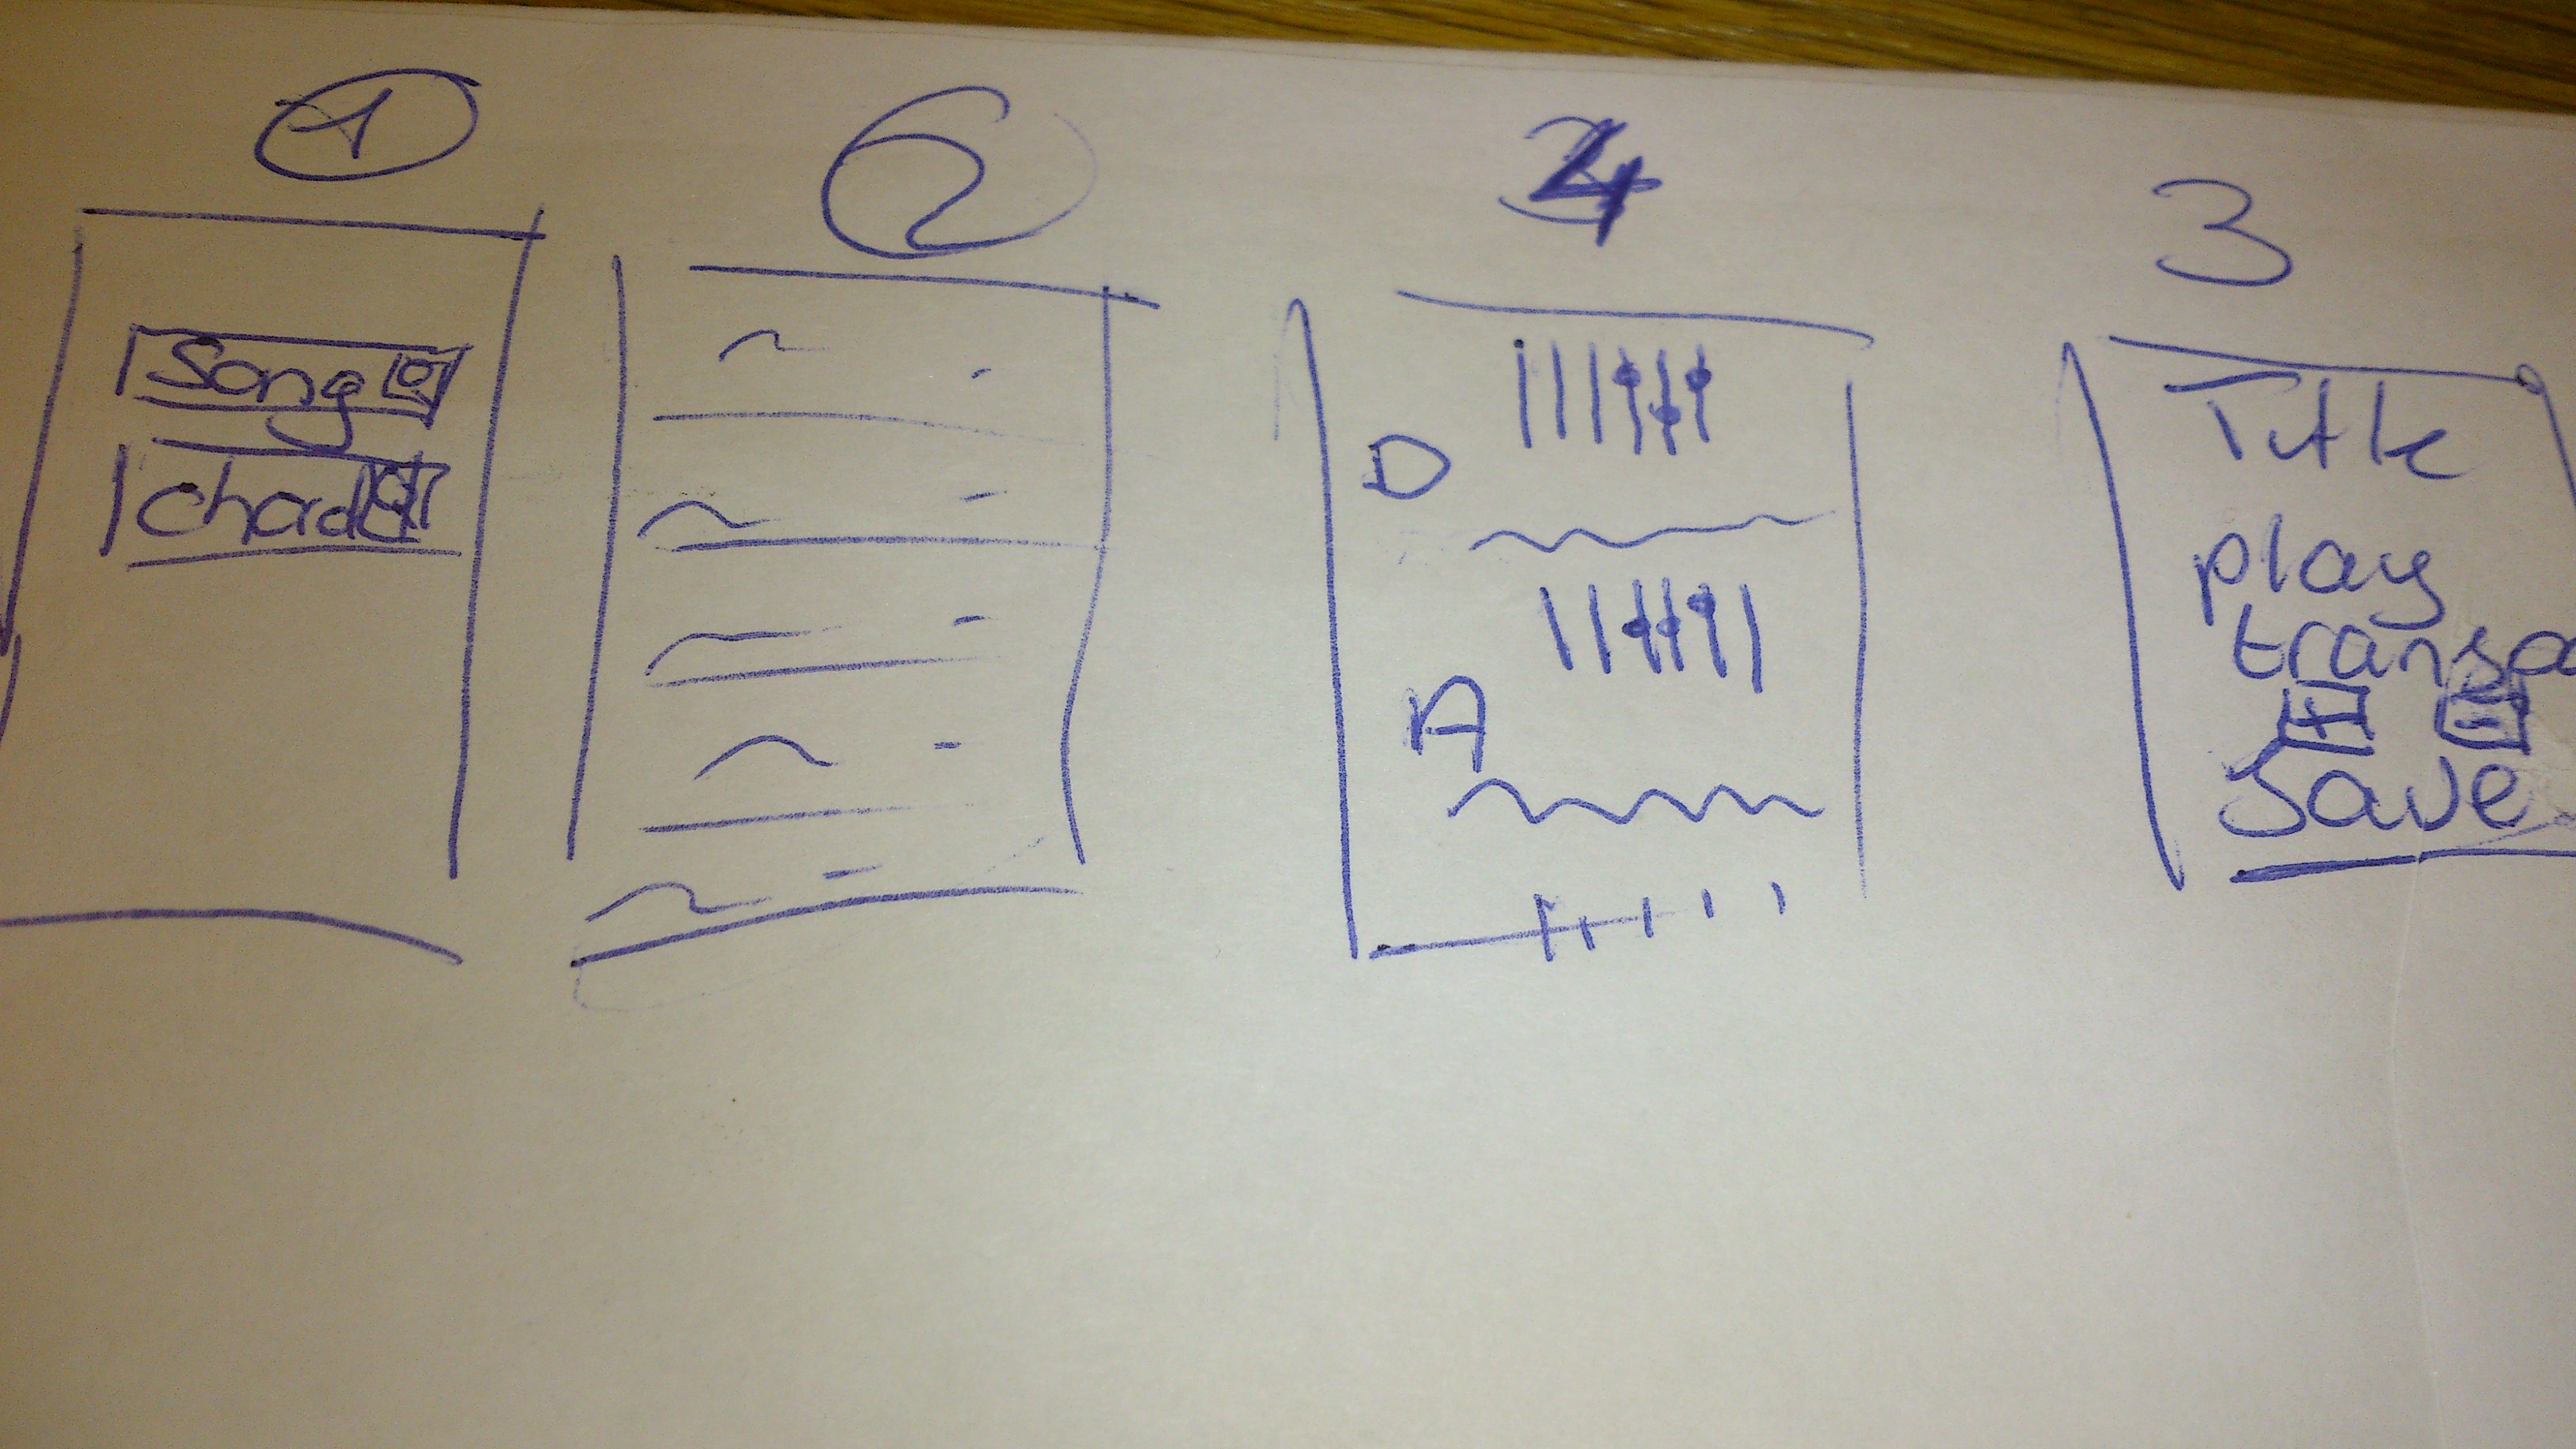 1
2
4
3
Song
chord
D
A
Title
play
transpo
+ -
Save